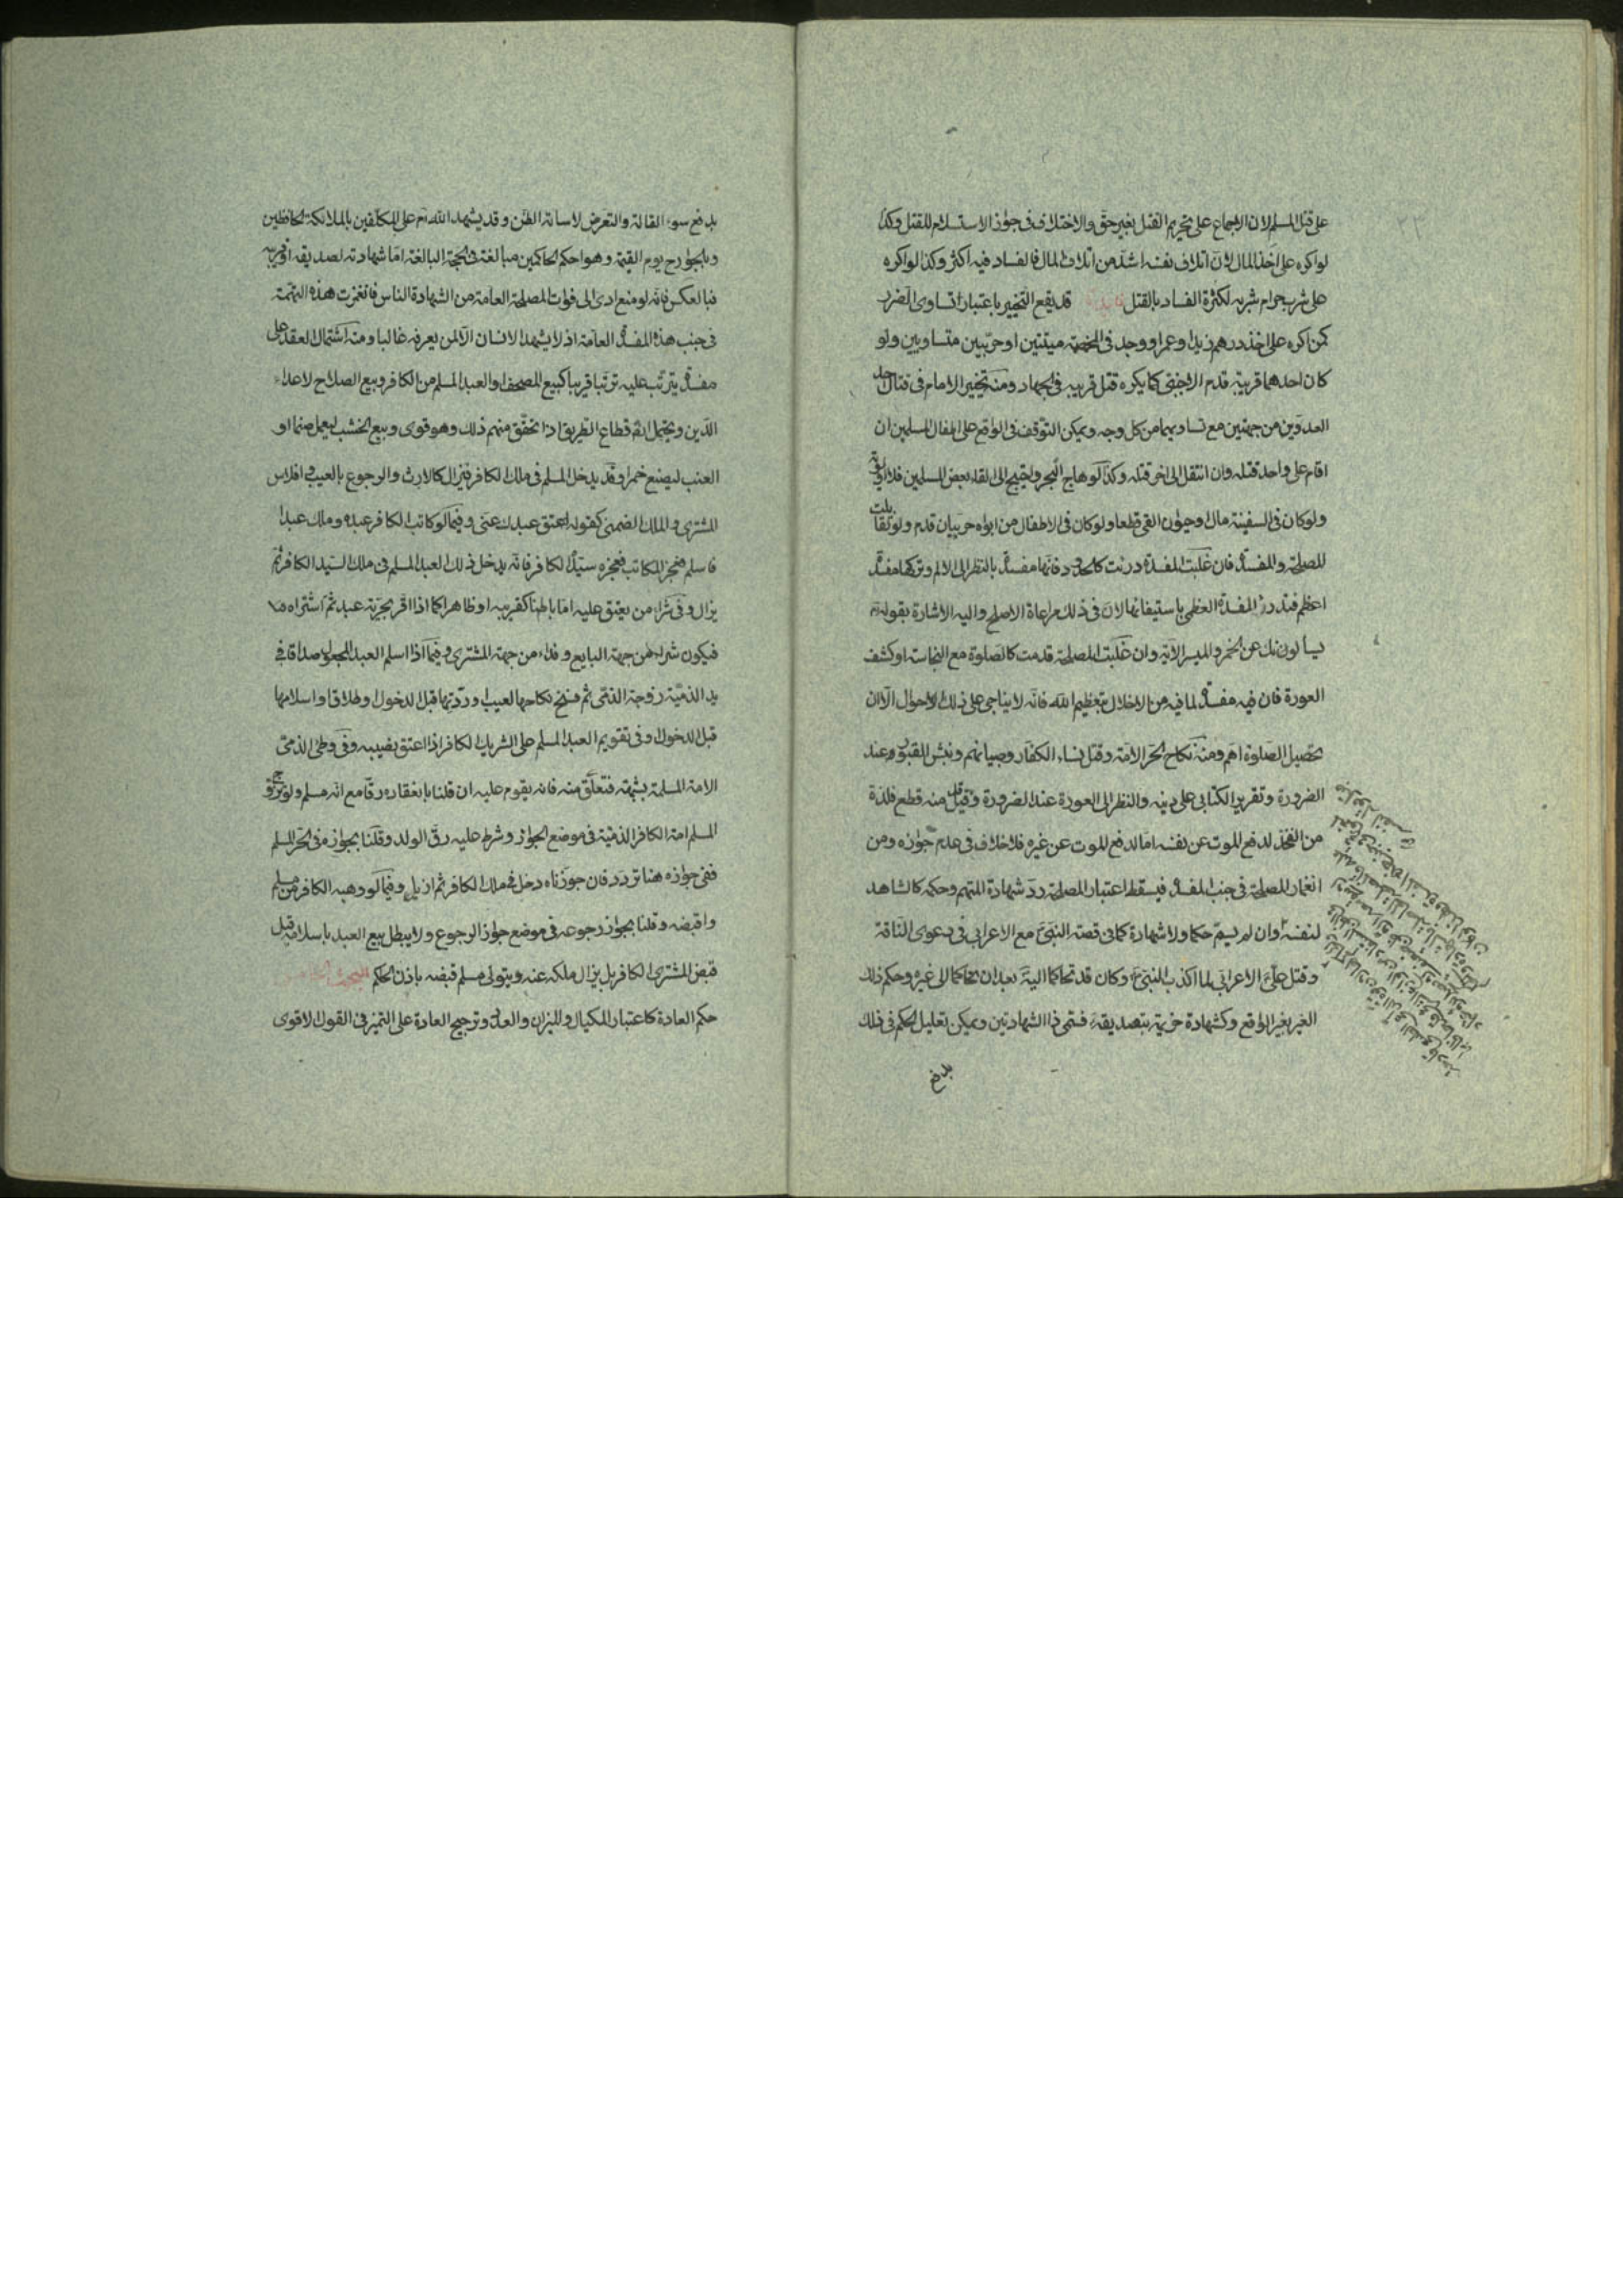 على قتل المسلم لان الاجماع على تحريم القتل بغير حق والاختلاف فى جواز الاستسلام للقتل وكذا
لو اكره على اخذ المال لان اتلاف نفسه اشد من اتلاف المال فالفساد فيه اكثر وكذا لو اكره
على شرب حرام شربه لكثرة الفساد بالقتل فايدة قد يقع التخيير باعتبار تساوى الضرر
كمن اكره على اخذ درهم زيد او عمر او وجد فى المخمصة ميتتين او حربيين متساويين ولو
كان احدهما قريبه قدم الاجنبى كما يكره قتل قريبه فى الجهاد ومنه تخيير الامام فى قتال احد
العدوين من جهتين مع تساويهما من كل وجه ويمكن التوقف فى الواقع على اطفال المسلمين ان
اقام على واحد قتله وان انتقل الى اخر قتله وكذا لو هاج البحر واحتيج الى القاء بعض المسلمين فلا اولوية
ولو كان فى السفينة مال او حيوان القى قطعا ولو كان فى الاطفال من ابواه حربيان قدم ولو تقابلت
المصلحة والمفسدة فان غلبت المفسدة درئت كالحدود فانها مفسدة بالنظر الى الالم وتركها مفسدة
اعظم فتدرء المفسدة العظمى باستيفائها لان فى ذلك مراعاة الاصلح واليه الاشارة بقوله تم
يسالونك عن الخمر والميسر الاية وان غلبت المصلحة قدمت كالصلوة مع النجاسة او كشف
العورة فان فيه مفسدة لما فيه من الاخلال بتعظيم الله فانه لا يناجى على ذلك الاحوال الا ان
تحصيل الصلوة اهم ومنه نكاح الحر الامة وقتل نساء الكفار وصبيانهم ونبش القبور عند
الضرورة وتقرير الكتابى على دينه والنظر الى العورة عند الضرورة وقيل منه قطع فلذة
من الفخذ لدفع الموت عن نفسه اما لدفع الموت عن غيره فلا خلاف فى عدم جوازه ومن
انغمار المصلحة فى جنب المفسدة فيسقط اعتبار المصلحة رد شهادة المتهم وحكمه كالشاهد
لنفسه وان لم يسم حكما ولا شهادة كما فى قصة النبى مع الاعرابى فى دعوى الناقة
وقتل على الاعرابى لما اكذب النبى وكان قد تحاكما اليه بعد ان تحاكما الى غيره وحكم ذلك
الغير بغير الواقع وكشهادة خزيمة بتصديقه فسمى ذا الشهادتين ويمكن تعليل الحكم فى ذلك
بدفع
بدفع سوء القالة والتعرض لاساءة الظن وقد يشهد الله تم على المكلفين بالملائكة الحافظين
وبالجوارح يوم القيمة وهو احكم الحاكمين مبالغة فى الحجة البالغة اما شهادته لصديقه او قريبه
فبالعكس فانه لو منع ادى الى فوات المصلحة العامة من الشهادة الناس فانغمرت هذه التهمة
فى جنب هذه المفسدة العامة اذ لا يشهد الانسان الا لمن يعرفه غالبا ومنه اشتمال العقد على
مفسدة يترتب عليه ترتبا قريبا كبيع المصحف او العبد المسلم من الكافر وبيع السلاح لاعداء
الدين ويحتمل انه قطاع الطريق اذا تحقق منهم ذلك وهو قوى وبيع الخشب ليعمل صنما او
العنب ليصنع خمرا وقد يدخل المسلم فى ملك الكافر فيزال كالارث والرجوع بالعيب وافلاس
المشترى والملك الضمنى كقوله اعتق عبدك عنى وفيما لو كاتب الكافر عبده وملك عبدا
فاسلم فعجز المكاتب فعجزه سيده الكافر فانه يدخل ذلك العبد المسلم فى ملك السيد الكافر ثم
يزال وفى شراء من يعتق عليه اما باطنا كقريبه او ظاهرا كما اذا اقر بحرية عبد ثم اشتراه
فيكون شراء من جهة البايع وفداء من جهة المشترى وفيما اذا اسلم العبد المجعول صداقا فى
يد الذمية زوجة الذمى ثم فسخ نكاحها لعيب او ردتها قبل الدخول او طلاق او اسلامها
قبل الدخول وفى تقويم العبد المسلم على الشريك الكافر اذا اعتق نصيبه وفى وطئ الذمى
الامة المسلمة بشبهة فتعلق منه فانه يقوم عليه ان قلنا بانعقاده رقا مع انه مسلم ولو تزوج
المسلم امة الكافر الذمية فى موضع الجواز وشرط عليه رق الولد وقلنا بجوازه فى الحر المسلم
ففى جوازه هنا تردد فان جوزناه دخل فى ملك الكافر ثم ازيل وفيما لو وهبه الكافر من مسلم
واقبضه وقلنا بجواز رجوعه فى موضع جواز الرجوع ولا يبطل بيع العبد باسلامه قبل
قبض المشترى الكافر بل يزال ملكه عنه ويتولى مسلم قبضه باذن الحاكم
حكم العادة كاعتبار المكيال والميزان والعدد وترجيح العادة على التميز فى القول الاقوى